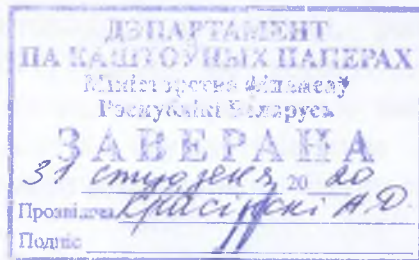 ДЭПАРТАМЕНТ
ПА КАШТОЎНЫХ ПАПЕРАХ
Міністэрства фінансаў
Рэспублікі Беларусь
ЗАВЕРАНА
31 студзеня 20 20
Прозвішча А.Д.
Подпіс